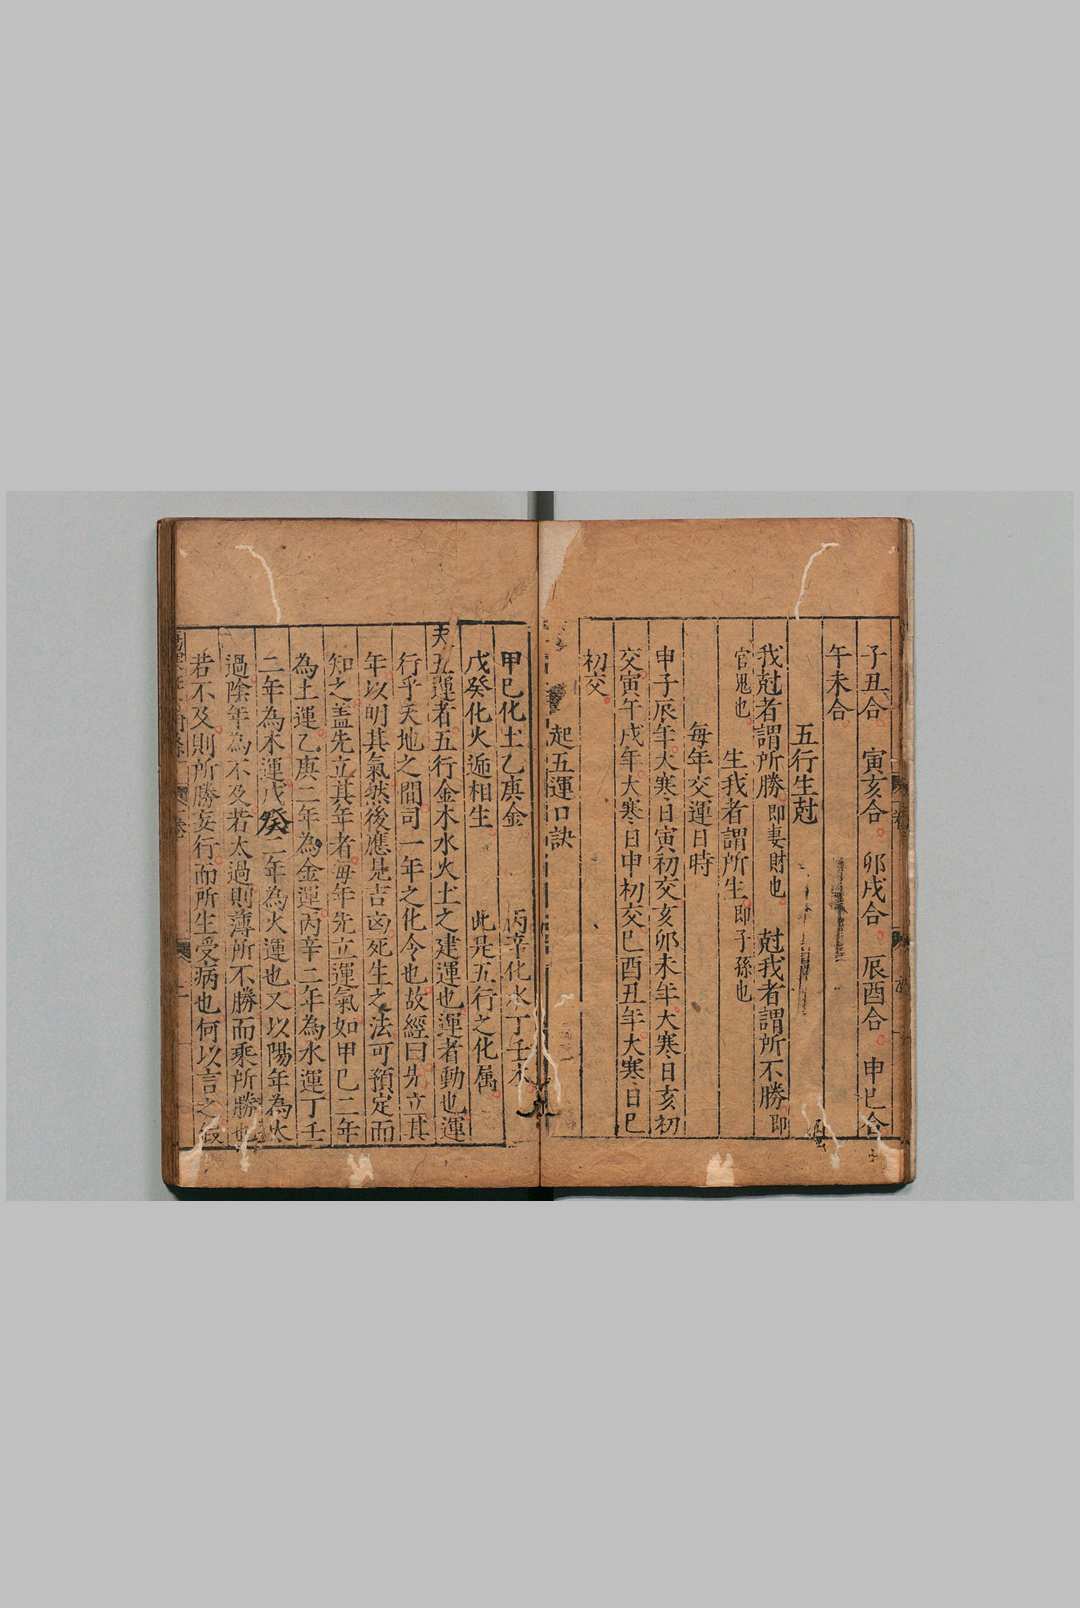 子丑合 寅亥合 卯戌合 辰酉合 申巳合
午未合
五行生尅
我尅者謂所勝即妻財也 尅我者謂所不勝即
官鬼也 生我者謂所生即子孫也
每年交運日時
申子辰年大寒日寅初交亥卯未年大寒日亥初
交寅午戌年大寒日申初交巳酉丑年大寒日巳
初交
起五運口訣
甲巳化土乙庚金 丙辛化水丁壬木
戊癸化火遁相生 此是五行之化属
夫五運者五行金木水火土之建運也運者動也運
行乎天地之間司一年之化令也故經曰先立其
年以明其氣然後應是吉凶死生之法可預定而
知之盖先立其年者每年先立運氣如甲巳二年
為土運乙庚二年為金運丙辛二年為水運丁壬
二年為木運戊癸二年為火運也又以陽年為太
過陰年為不及若太過則薄所不勝而乘所勝也
若不及則所勝妄行而所生受病也何以言之假